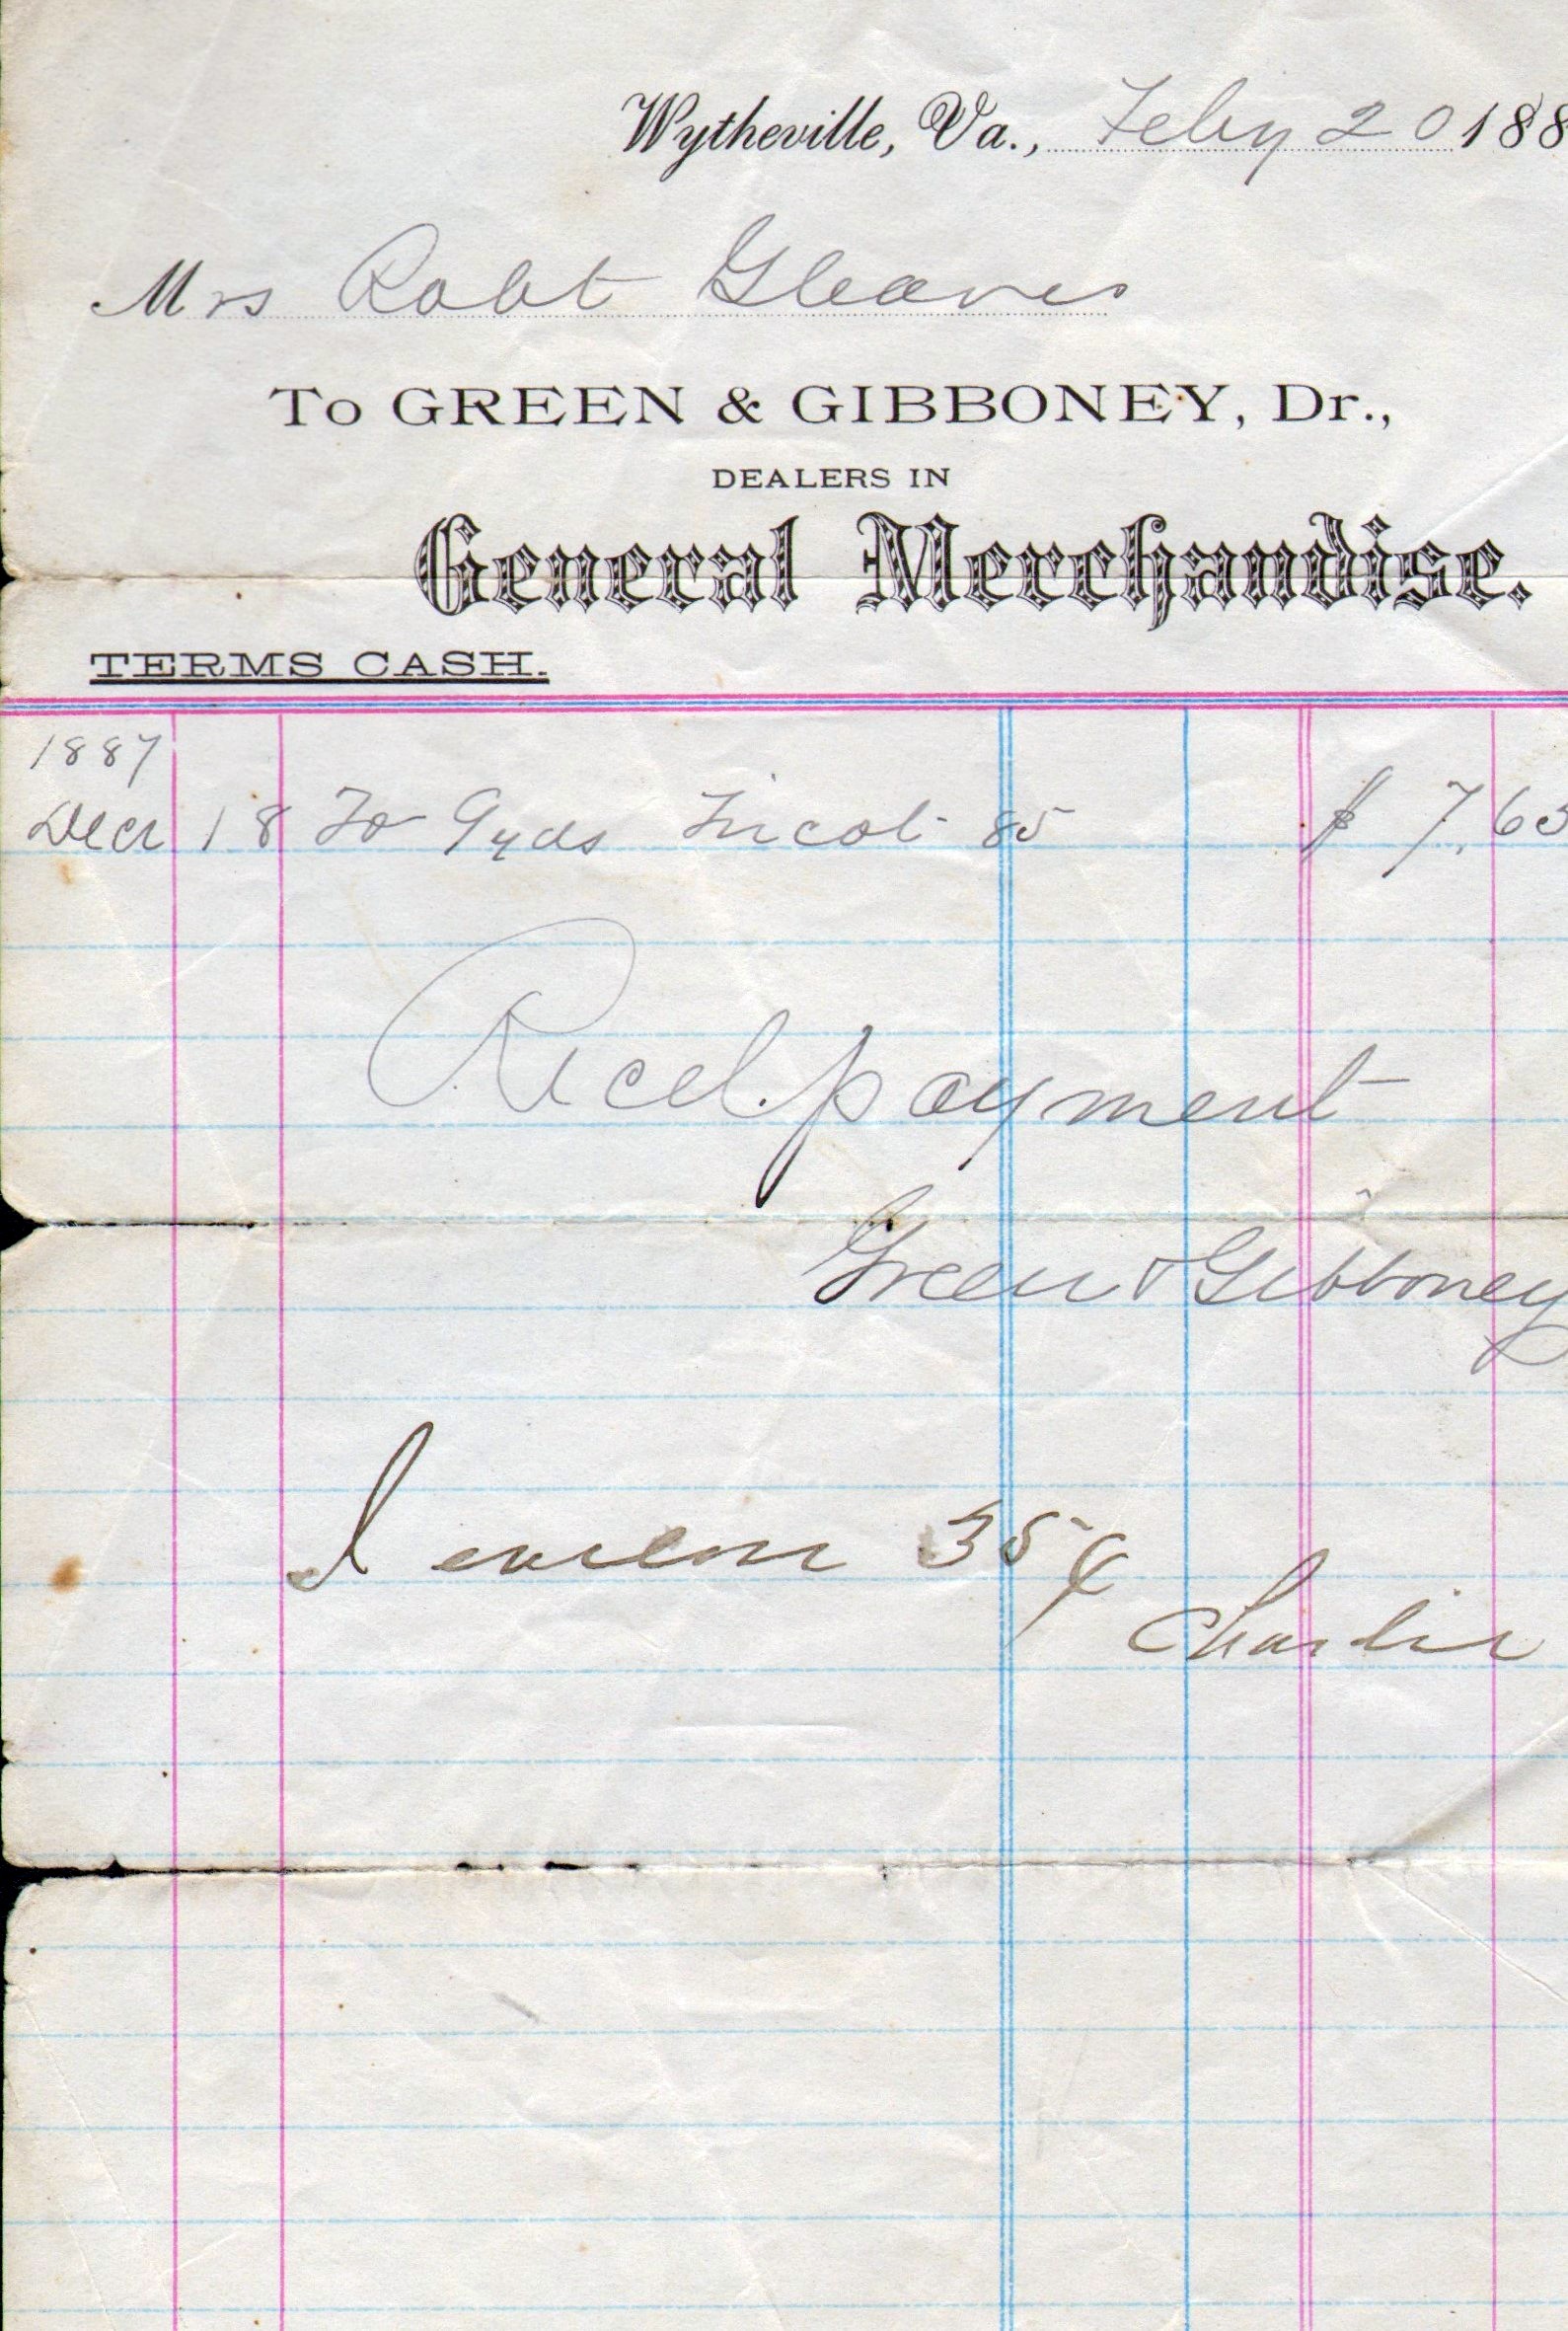 Wytheville, Va., Feby 20 188
Mrs Robt Gleaves
To GREEN & GIBBONEY, Dr.,
DEALERS IN
General Merchandise.
TERMS CASH.
1887
Decr 18 To 9 yds Tricot 85 $ 7.65
Recd. payment
Green & Gibboney
I 35 ¢
Charlie